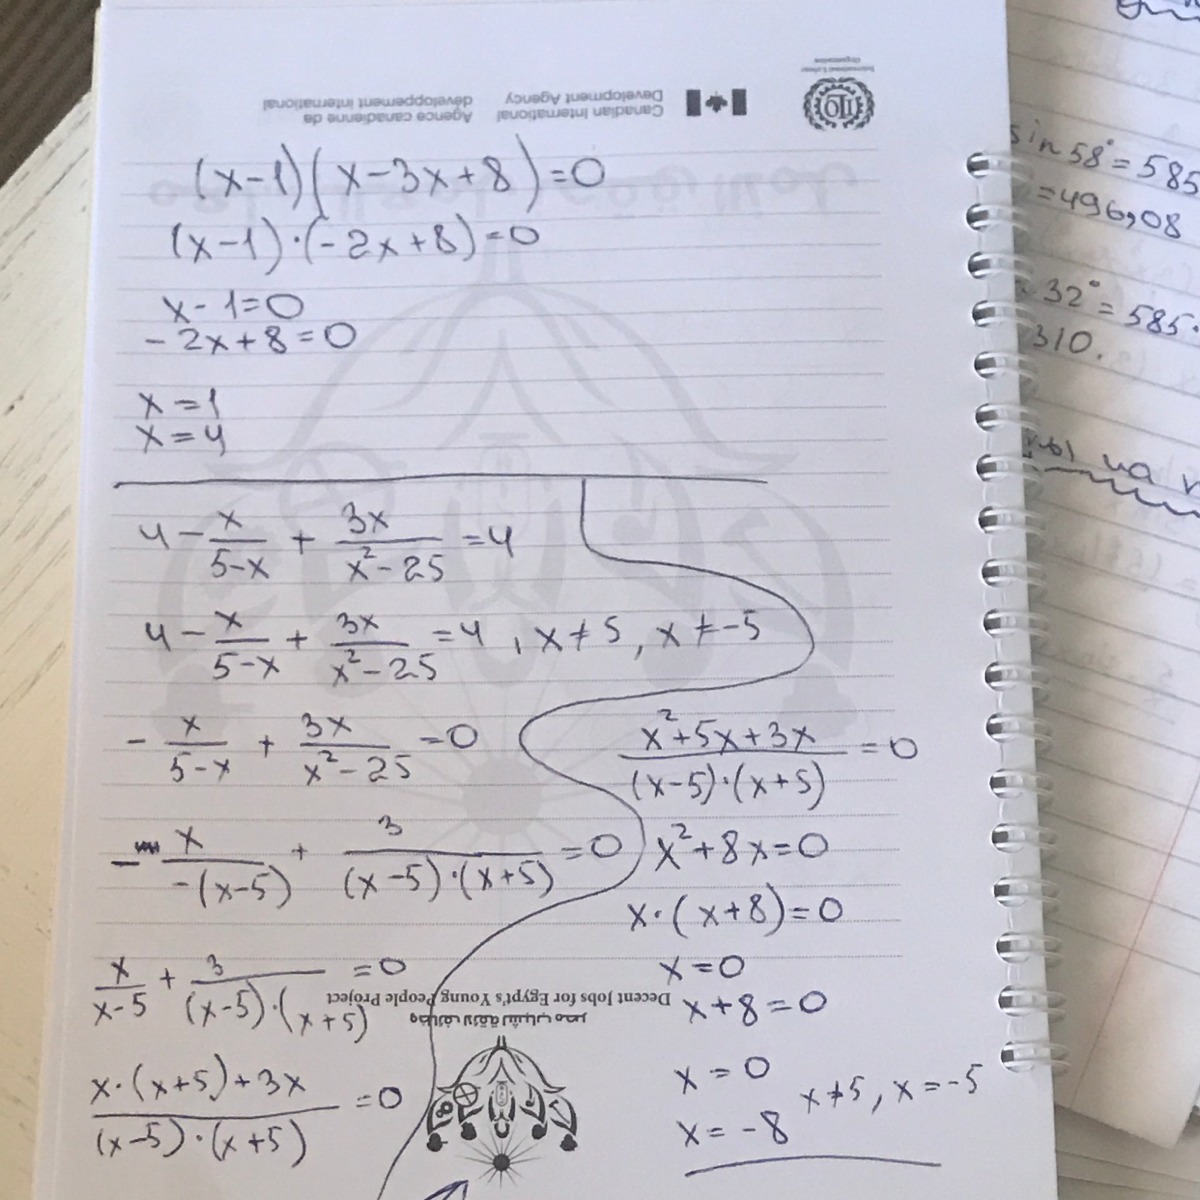 International Labour
Organization
Canadian International
Development Agency
Agence canadienne de
développement international
(x-1)(x-3x+8)=0
(x-1)·(-2x+8)=0
x-1=0
-2x+8=0
x=1
x=4
4 - x/(5-x) + 3x/(x²-25) = 4
4 - x/(5-x) + 3x/(x²-25) = 4, x≠5, x≠-5
- x/(5-x) + 3x/(x²-25) = 0
- x/(-(x-5)) + 3/((x-5)·(x+5)) = 0
x/(x-5) + 3/((x-5)·(x+5)) = 0
(x·(x+5)+3x)/((x-5)·(x+5)) = 0
(x²+5x+3x)/((x-5)·(x+5)) = 0
x²+8x=0
x·(x+8)=0
x=0
x+8=0
x=0
x=-8
x≠5, x=-5
Decent Jobs for Egypt's Young People Project
وظائف لائقة لشباب مصر
sin 58°=585
=496,08
32°=585·
310.
на